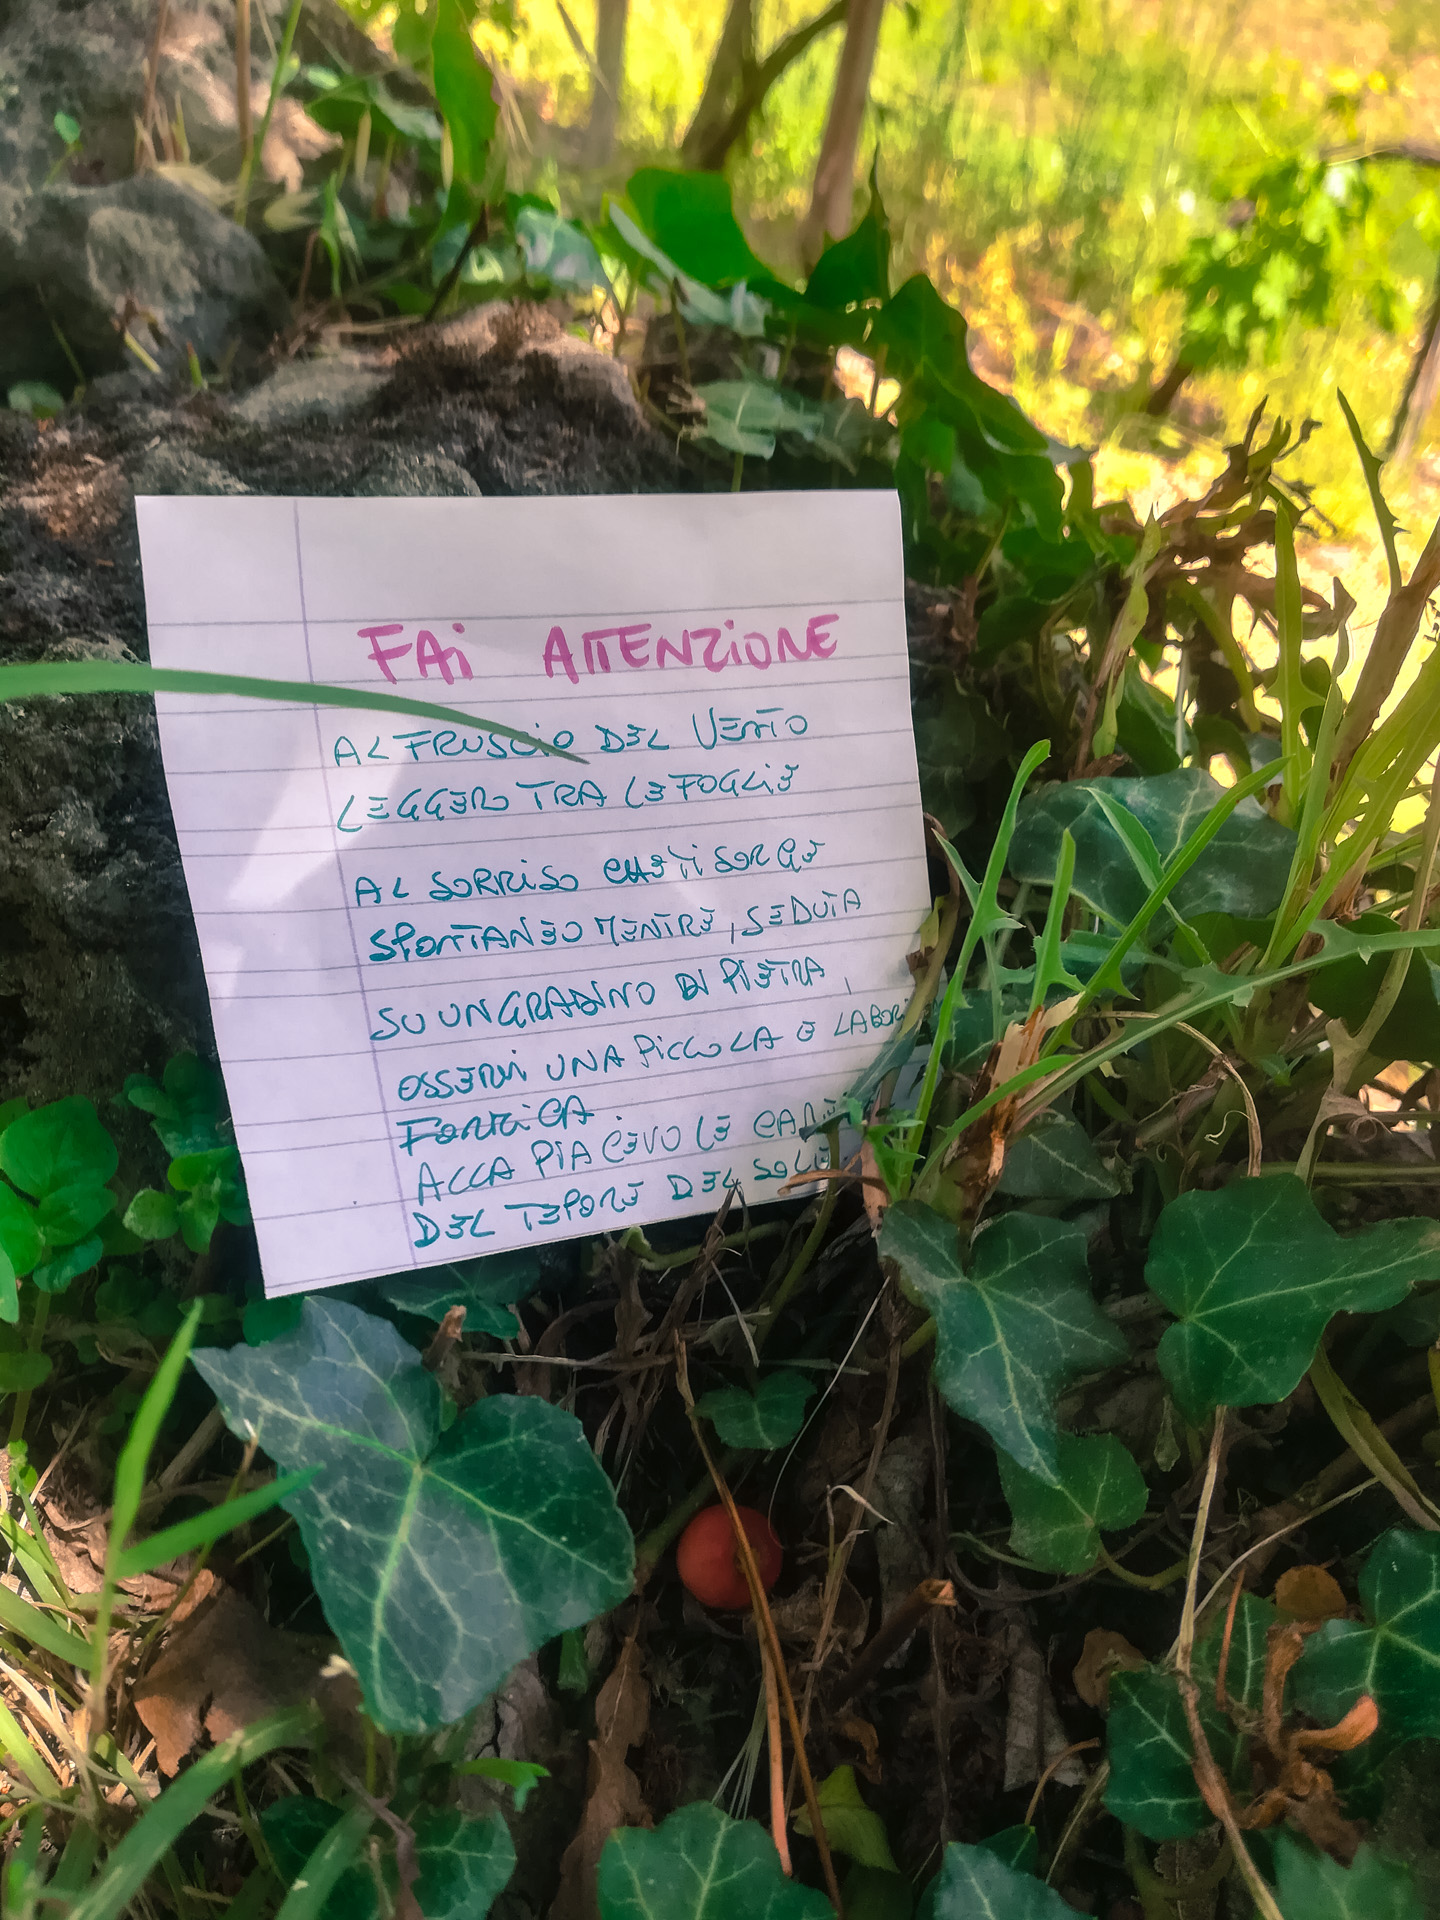 FAI ATTENZIONE
AL FRUSCIO DEL VENTO
LEGGERO TRA LE FOGLIE
AL SORRISO CHE TI SORGE
SPONTANEO MENTRE, SEDUTA
SU UN GRADINO DI PIETRA,
OSSERVI UNA PICCOLA E LABORI
FORMICA
ALLA PIACEVOLE
DEL TEPORE DEL SOLE